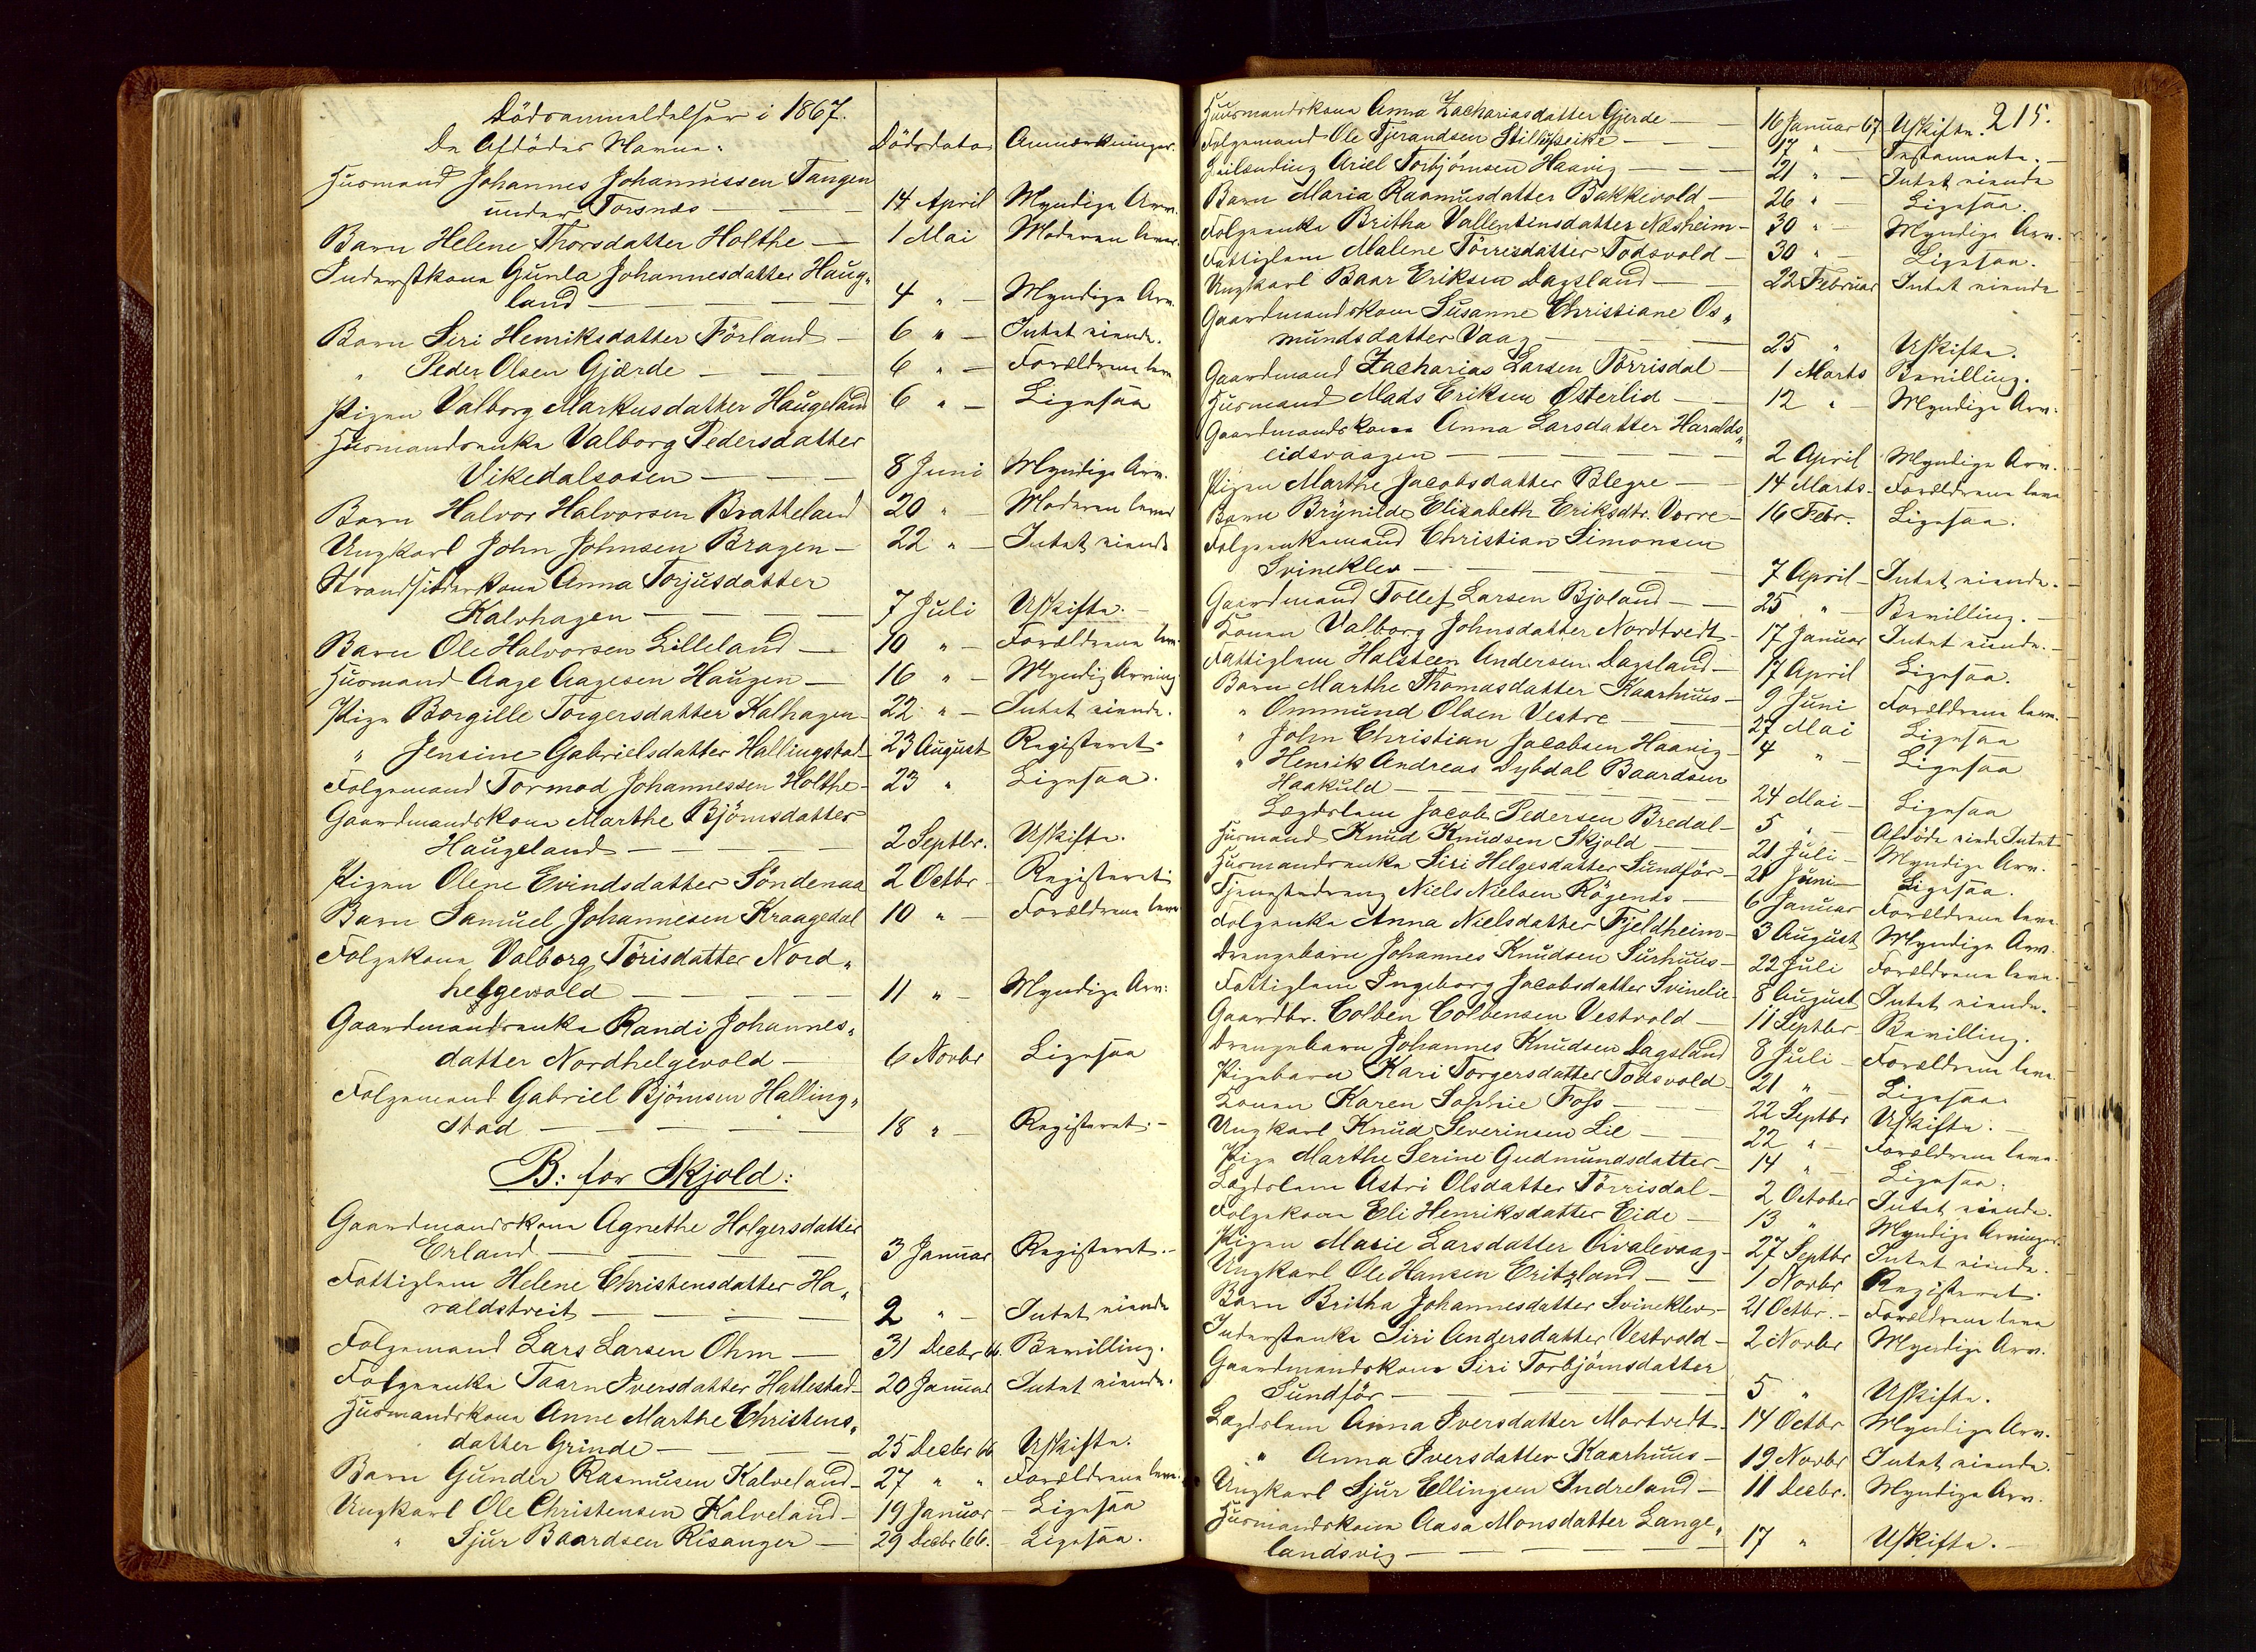 Dödsanmeldelser i 1867.
De Afdödes Navne. Dödsdato Anmærkninger.
Huusmand Johannes Johannessen Tangen
under Torsnæs — 14 April Myndige Arv.
Barn Helene Thorsdatter Holthe — 1 Mai Moderen lever.
Inderstkone Gunla Johannesdatter Haug„
land — 4 „ — Myndige Arv.
Barn Siri Henriksdatter Förland — 6 „ — Intet eiende.
„ Peder Olsen Gjærde — 6 „ — Forældrene leve
Pigen Valborg Markusdatter Haugeland 6 „ — Ligesaa
Huusmandsenke Valborg Pedersdatter
Vikedalsosen — 8 Juni Myndige Arv.
Barn Halvor Halvorsen Bratheland 20 „ — Moderen lever
Ungkarl John Johnsen Bragen — 22 „ — Intet eiende
Strandsidderkone Anna Torjusdatter
Kalvhagen — 7 Juli Uskifte. —
Barn Ole Halvorsen Lilleland — 10 „ — Forældrene leve.
Huusmand Aage Aagesen Haugen — 16 „ — Myndig Arving
Pige Borgille Torgersdatter Kalhagen — 22 „ — Intet eiende.
„ Jensine Gabrielsdatter Hallingstad 23 August Registeret.
Folgemand Tormod Johannessen Holthe — 23 „ Ligesaa.
Gaardmandskone Marthe Björnsdatter
Haugeland — 2 Septbr. Uskifte.
Pigen Olene Evindsdatter Söndenaa 2 Octbr — Registeret
Barn Samuel Johannesen Kraagedal 10 „ — Forældrene leve
Folgekone Valborg Törisdatter Nord„
helgevold — 11 „ — Myndige Arv:
Gaardmandsenke Randi Johannes„
datter Nordhelgevold — 6 Novbr Ligesaa
Folgemand Gabriel Björnsen Halling„
stad — 18 „ — Registeret. —
B: for Skjold:
Gaardmandskone Agnethe Holgersdatter
Erland — 3 Januar Registeret. —
Fattiglem Helene Christensdatter Ha„
raldstveit — 2 „ — Intet eiende
Folgemand Lars Larsen Ohm — 31 Decbr 66. Bevilling.
Folgeenke Taarn Iversdatter Hatlestad — 20 Januar Intet eiende.
Huusmandskone Anne Marthe Christens„
datter Grinde — 25 Decbr 66 Uskifte.
Barn Gunder Rasmusen Kalveland — 27 „ „ Forældrene leve.
Ungkarl Ole Christensen Kalveland — 19 Januar — Ligesaa
„ Sjur Baardsen Risanger — 29 Decbr 66. — Ligesaa.
215.
Huusmandskone Anna Zachariasdatter Gjerde — 16 Januar 67 Uskifte.
Folgemand Ole Tjerandsen — 17 „ — Testamente. —
Leilending Ariel Torbjörnsen Haavig — 21 „ — Intet eiende
Barn Maria Rasmusdatter Bakkevold — 26 „ — Ligesaa.
Folgeenke Britha Vallentinsdatter Næsheim — 30 „ — Myndige Arv.
Fattiglem Malene Törrisdatter Todsvold — 30 „ — Ligesaa.
Ungkarl Baar Eriksen Dagsland — 22 Februar Intet eiende
Gaardmandskone Susanne Christiane Os„
mundsdatter Vaag — 25 „ Uskifte.
Gaardmand Zacharias Larsen Törrisdal — 1 Marts Bevilling.
Huusmand Mads Eriksen Østerlid — 12 „ — Myndige Arv.
Gaardmandskone Anna Larsdatter Haralds„
eidsvaagen — 2 April Myndige Arv.
Pigen Marthe Jacobsdatter Blegre — 14 Marts. Forældrene leve
Barn Brynilde Elisabeth Eriksdtr. Vorre — 16 Febr. Ligesaa.
Folgeenkemand Christian Simonsen
Svineklev — 7 April — Intet eiende.
Gaardmand Tollef Larsen Bjoland — 25 „ — Bevilling. —
Konen Valborg Johnsdatter Nordtvedt — 17 Januar Intet eiende. —
Fattiglem Halsteen Andersen Dagsland — 17 April Ligesaa.
Barn Marthe Thomasdatter Kaarhuus — 9 Juni Forældrene leve.
„ Ommund Olsen Vestre — 27 Mai Ligesaa
„ John Christian Jacobsen Haavig — 4 „ — Ligesaa
„ Henrik Andreas Dybdal Baardsen
Haakuld — 24 Mai — Ligesaa
Lægdslem Jacob Pedersen Bredal — 5 „ — Afdöde eiede Intet
Huusmand Knud Knudsen Skjold — 21 Juli — Myndige Arv.
Huusmandsenke Siri Helgesdatter Sundför — 21 Juni — Ligesaa.
Tjenestedreng Niels Nielsen Rögenæs — 6 Januar Forældrene leve.
Folgeenke Anna Nielsdatter Fjeldheim — 3 August Myndige Arv.
Drengebarn Johannes Knudsen Surhuus — 22 Juli Forældrene leve.
Fattiglem Ingeborg Jacobsdatter Svinelie — 8 August Intet eiende.
Gaardbr. Colben Colbensen Vestvold — 11 Septbr Bevilling.
Drengebarn Johannes Knudsen Dagsland 8 Juli — Forældrene leve.
Pigebarn Kari Torgersdatter Todsvold — 21 „ — Ligesaa.
Konen Karen Sophie Foss — 22 Septbr Uskifte. —
Ungkarl Knud Severinsen Lie — 22 „ — Forældrene leve.
Pige Marthe Serine Gudmundsdatter — 14 „ — Ligesaa.
Lægdslem Astri Olsdatter Törrisdal — 2 October Intet eiende.
Folgekone Eli Henriksdatter Eide — 13 „ Myndige Arvinger.
Pigen Marie Larsdatter Qvalevaag — 27 Septbr Intet eiende.
Ungkarl Ole Hansen Eritzland — 1 Novbr Registeret.
Barn Britha Johannesdatter Svineklev — 21 Octbr. — Forældrene leve
Inderstenke Siri Andersdatter Vestvold — 2 Novbr Myndige Arv.
Gaardmandskone Siri Torbjörnsdatter
Sundför — 5 „ Uskifte.
Lægdslem Anna Iversdatter Mortvedt — 14 Octbr Myndige Arv.
„ Anna Iversdatter Kaarhuus — 19 Novbr Intet eiende.
Ungkarl Sjur Ellingsen Indreland — 11 Decbr. Myndige Arv.
Huusmandskone Aasa Monsdatter Lange„
landsvig — 17 „ Uskifte. —